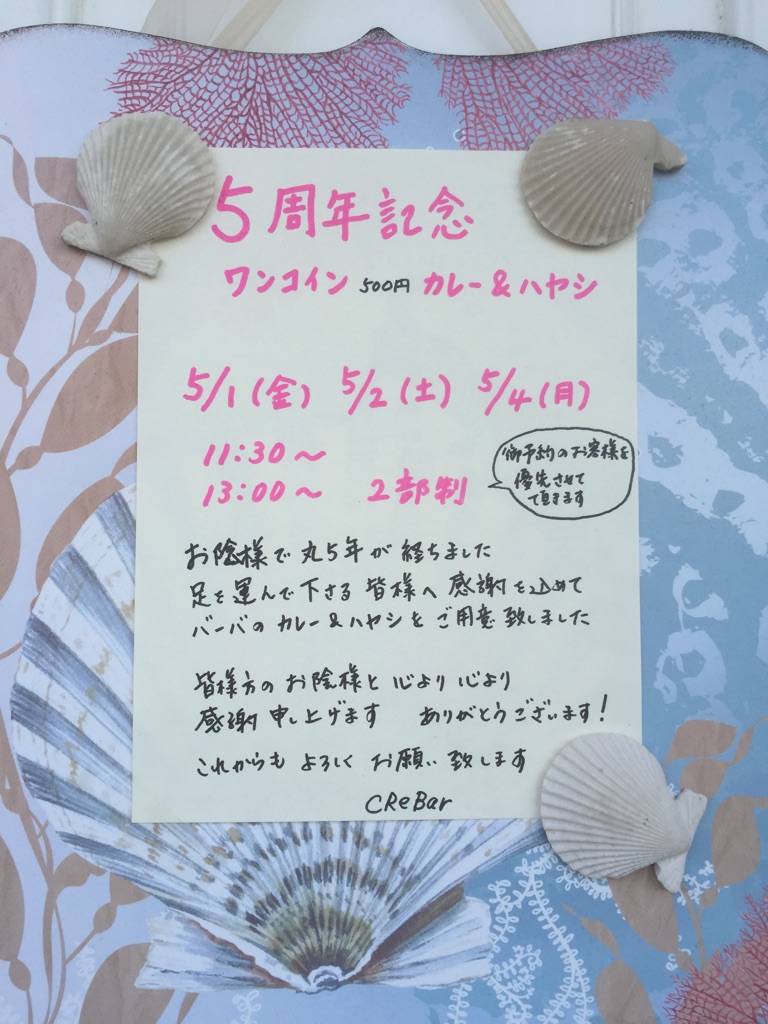 5周年記念
ワンコイン 500円 カレー&ハヤシ
5/1(金) 5/2(土) 5/4(月)
11:30〜
13:00〜 2部制
御予約のお客様を
優先させて
て頂きます
お陰様で丸5年が経ちました
足を運んで下さる皆様へ感謝を込めて
バーバのカレー&ハヤシをご用意致しました
皆様方のお陰様と心より心より
感謝申し上げます ありがとうございます!
これからもよろしくお願い致します
CReBar